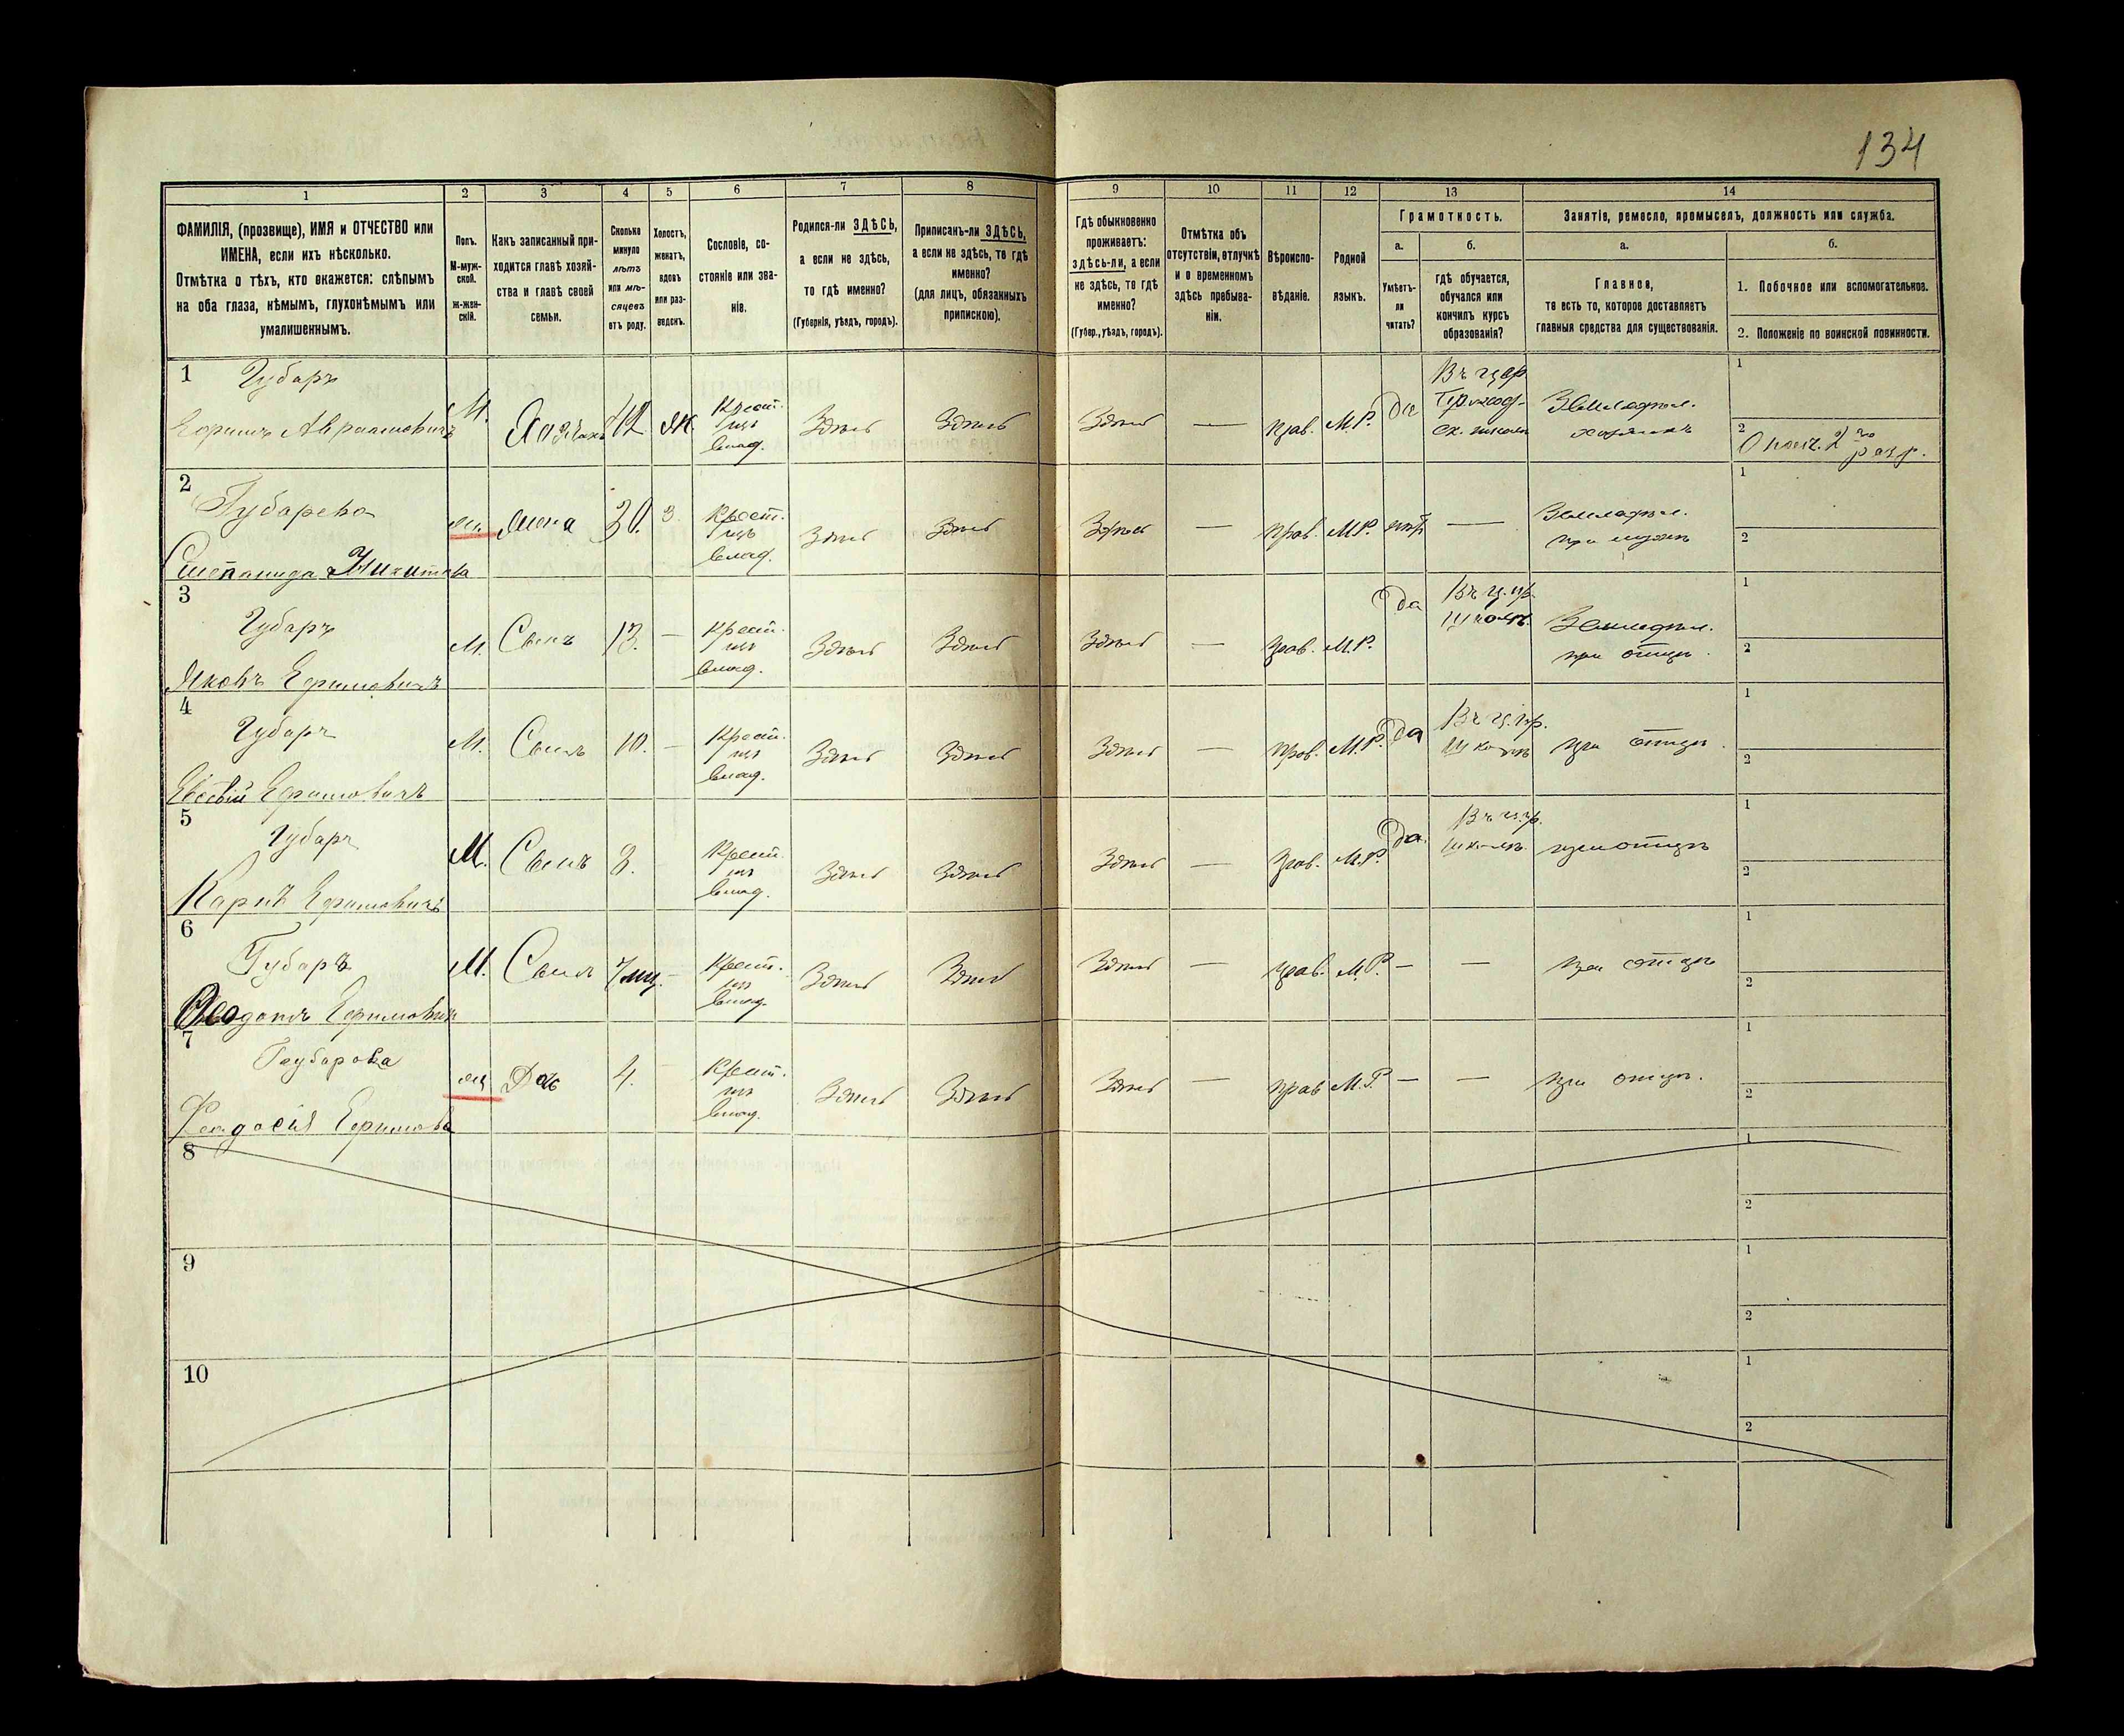 134
1
2
3
4
5
6
7
8
9
10
11
12
13
14
ФАМИЛІЯ, (прозвище), ИМЯ и ОТЧЕСТВО или
ИМЕНА, если ихъ нѣсколько.
Отмѣтка о тѣхъ, кто окажется: слѣпымъ
на оба глаза, нѣмымъ, глухонѣмымъ или
умалишеннымъ.
Полъ.
М-муж-
ской.
ж-жен-
скій.
Какъ записанный при-
ходится главѣ хозяй-
ства и главѣ своей
семьи.
Сколько
минуло
лѣтъ
или мѣ-
сяцевъ
отъ роду.
Холостъ,
женатъ,
вдовъ
или раз-
веденъ.
Сословіе, со-
стояніе или зва-
ніе.
Родился-ли ЗДѢСЬ,
а если не здѣсь,
то гдѣ именно?
(Губернія, уѣздъ, городъ).
Приписанъ-ли ЗДѢСЬ,
а если не здѣсь, то гдѣ
именно?
(для лицъ, обязанныхъ
припискою).
Гдѣ обыкновенно
проживаетъ:
ЗДѢСЬ-ЛИ, а если
не здѣсь, то гдѣ
именно?
(Губер., уѣздъ, городъ).
Отмѣтка объ
отсутствіи, отлучкѣ
и о временномъ
здѣсь пребыва-
ніи.
Вѣроиспо-
вѣданіе.
Родной
языкъ.
Грамотность.
а.
б.
Умѣетъ-
ли
читать?
гдѣ обучается,
обучался или
кончилъ курсъ
образованія?
Занятіе, ремесло, промыселъ, должность или служба.
а.
б.
Главное,
то есть то, которое доставляетъ
главныя средства для существованія.
1. Побочное или вспомогательное.
2. Положеніе по воинской повинности.
1 Губарь
Ефимъ Авраамовичъ
М.
Хозяинъ
42
Ж.
Крест.
изъ
влад.
Здѣсь
Здѣсь
Здѣсь
—
прав.
М.Р.
Да
Въ цер.
приход-
ск. школѣ
Земледѣл.
хозяинъ
1
2
Ополч. 2го
разр.
2
Губарева
Степанида Никитова
жена
30.
З.
Крест.
изъ
влад.
Здѣсь
Здѣсь
Здѣсь
—
прав.
М.Р.
нѣтъ
—
Земледѣл.
при мужѣ
1
2
3
Губарь
Яковъ Ефимовичъ
М.
Сынъ
13.
—
Крест.
изъ
влад.
Здѣсь
Здѣсь
Здѣсь
прав.
М.Р.
Да
Въ ц. пр.
школѣ.
Земледѣл.
при отцѣ.
1
2
4
Губарь
Ефимовичъ
М.
Сынъ
10.
—
Крест.
изъ
влад.
Здѣсь
Здѣсь
Здѣсь
—
прав.
М.Р.
Да
Въ ц. пр.
школѣ
при отцѣ.
1
2
5
Губарь
Ефимовичъ
М.
Сынъ
8.
Крест.
изъ
влад.
Здѣсь
Здѣсь
Здѣсь
—
прав.
М.Р.
Да.
Въ ц. пр.
школѣ.
при отцѣ
1
2
6
Губарь
Ефимович
М.
Сынъ
7 мц.
—
Крест.
изъ
влад.
Здѣсь
Здѣсь
Здѣсь
—
прав.
М.Р.
—
—
при отцѣ
1
2
7
Губарова
Феадосія Ефимова
Дочь
4.
Крест.
изъ
влад.
Здѣсь
Здѣсь
Здѣсь
—
прав
М.Р.
—
—
при отцѣ.
1
2
8
1
2
9
1
2
10
1
2